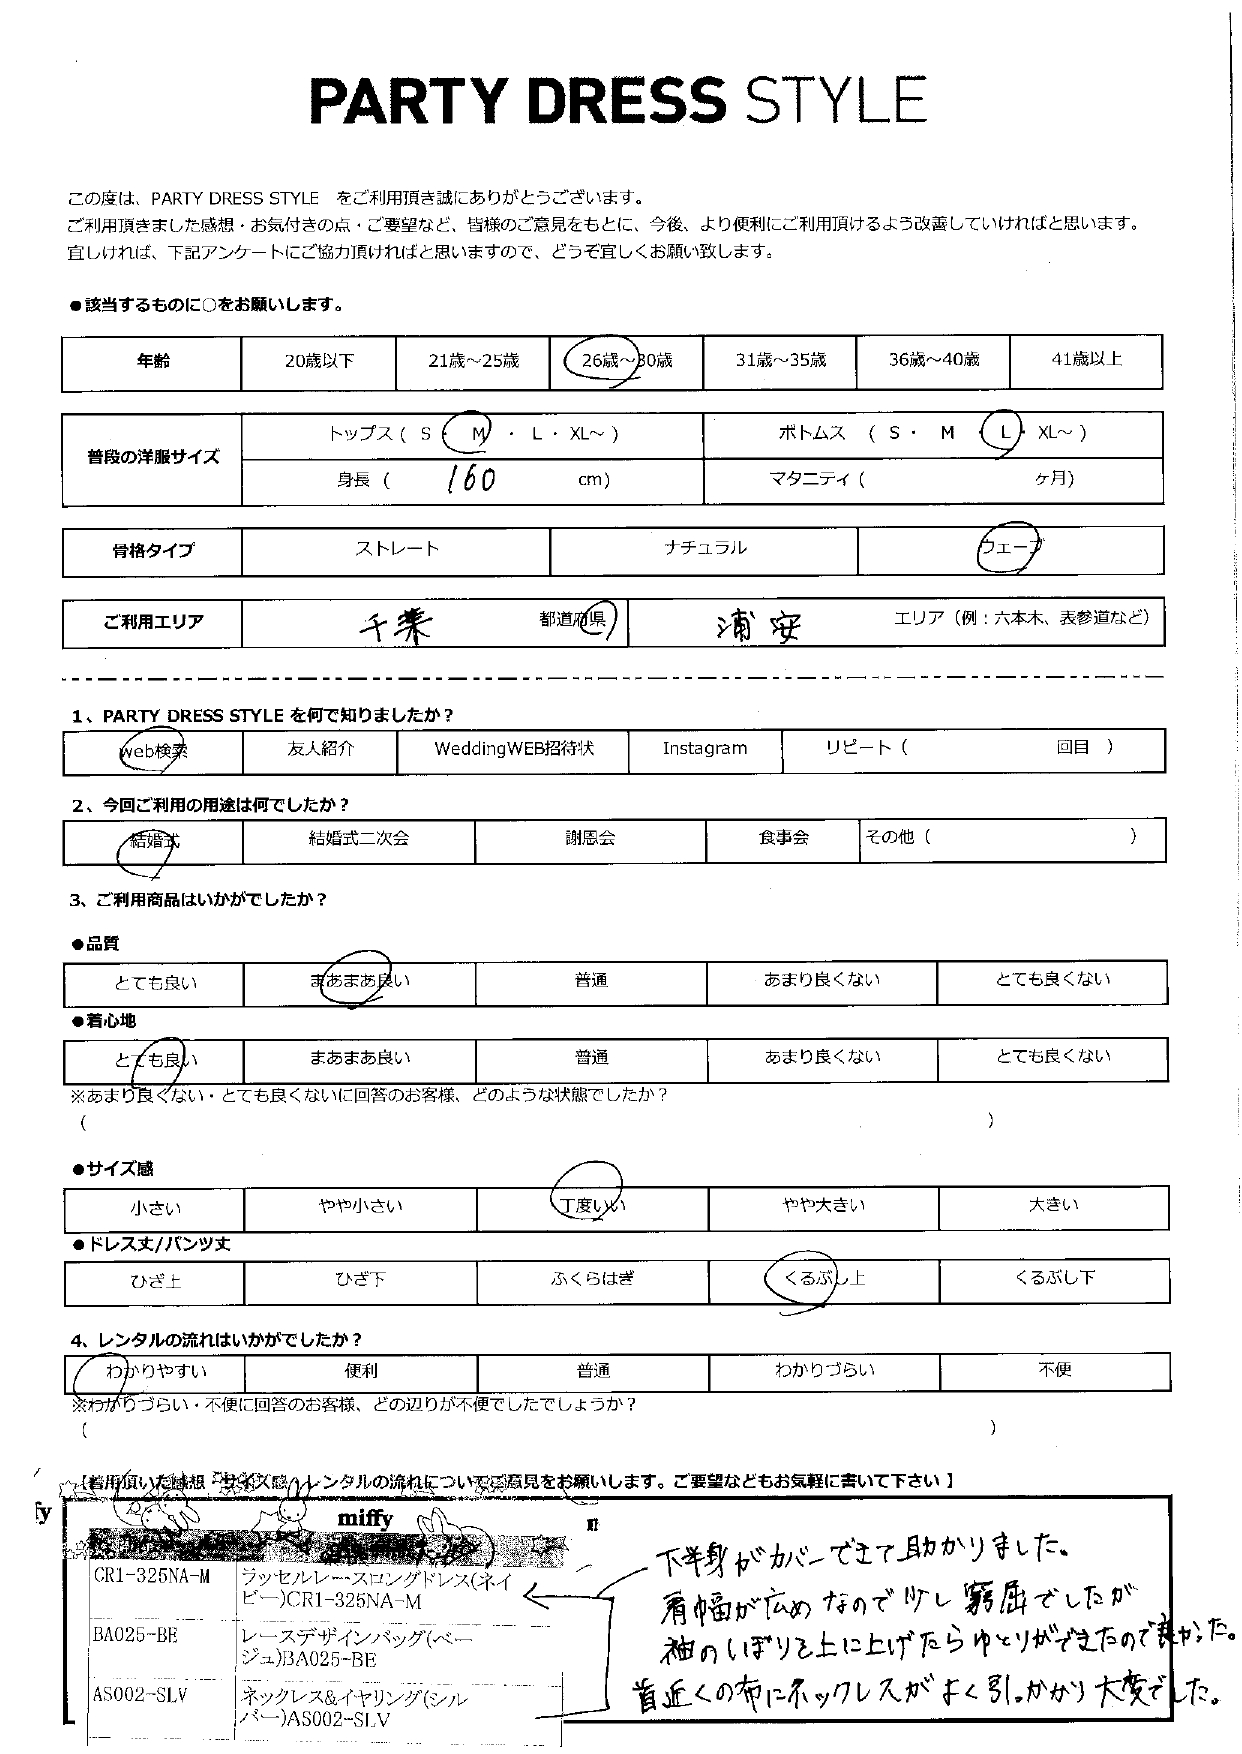 PARTY DRESS STYLE
この度は、PARTY DRESS STYLE をご利用頂き誠にありがとうございます。
ご利用頂きました感想・お気付きの点・ご要望など、皆様のご意見をもとに、今後、より便利にご利用頂けるよう改善していければと思います。
宜しければ、下記アンケートにご協力頂ければと思いますので、どうぞ宜しくお願い致します。
●該当するものに○をお願いします。
年齢 20歳以下 21歳～25歳 26歳～30歳 31歳～35歳 36歳～40歳 41歳以上
普段の洋服サイズ トップス ( S ・ M ・ L ・ XL～ ) ボトムス ( S ・ M ・ L ・ XL～ )
身長 ( 160 cm) マタニティ ( ヶ月)
骨格タイプ ストレート ナチュラル ウェーブ
ご利用エリア 千葉 都道府県 浦安 エリア（例：六本木、表参道など）
1、PARTY DRESS STYLE を何で知りましたか？
web検索 友人紹介 WeddingWEB招待状 Instagram リピート（ 回目 ）
2、今回ご利用の用途は何でしたか？
結婚式 結婚式二次会 謝恩会 食事会 その他（ ）
3、ご利用商品はいかがでしたか？
●品質
とても良い まあまあ良い 普通 あまり良くない とても良くない
●着心地
とても良い まあまあ良い 普通 あまり良くない とても良くない
※あまり良くない・とても良くないに回答のお客様、どのような状態でしたか？
( )
●サイズ感
小さい やや小さい 丁度いい やや大きい 大きい
●ドレス丈/パンツ丈
ひざ上 ひざ下 ふくらはぎ くるぶし上 くるぶし下
4、レンタルの流れはいかがでしたか？
わかりやすい 便利 普通 わかりづらい 不便
※わかりづらい・不便に回答のお客様、どの辺りが不便でしたでしょうか？
( )
【着用頂いた感想・サイズ感・レンタルの流れについてご意見をお願いします。ご要望などもお気軽に書いて下さい 】
fy miffy
下半身がカバーできて助かりました。
CR1-325NA-M ラッセルレースロングドレス(ネイ
ビー)CR1-325NA-M
肩幅が広めなので少し窮屈でしたが
BA025-BE レースデザインバッグ(ベー
ジュ)BA025-BE
袖のしぼりを上に上げたらゆとりができたので良かった。
AS002-SLV ネックレス&イヤリング(シル
バー)AS002-SLV
首近くの布にネックレスがよく引っかかり大変でした。